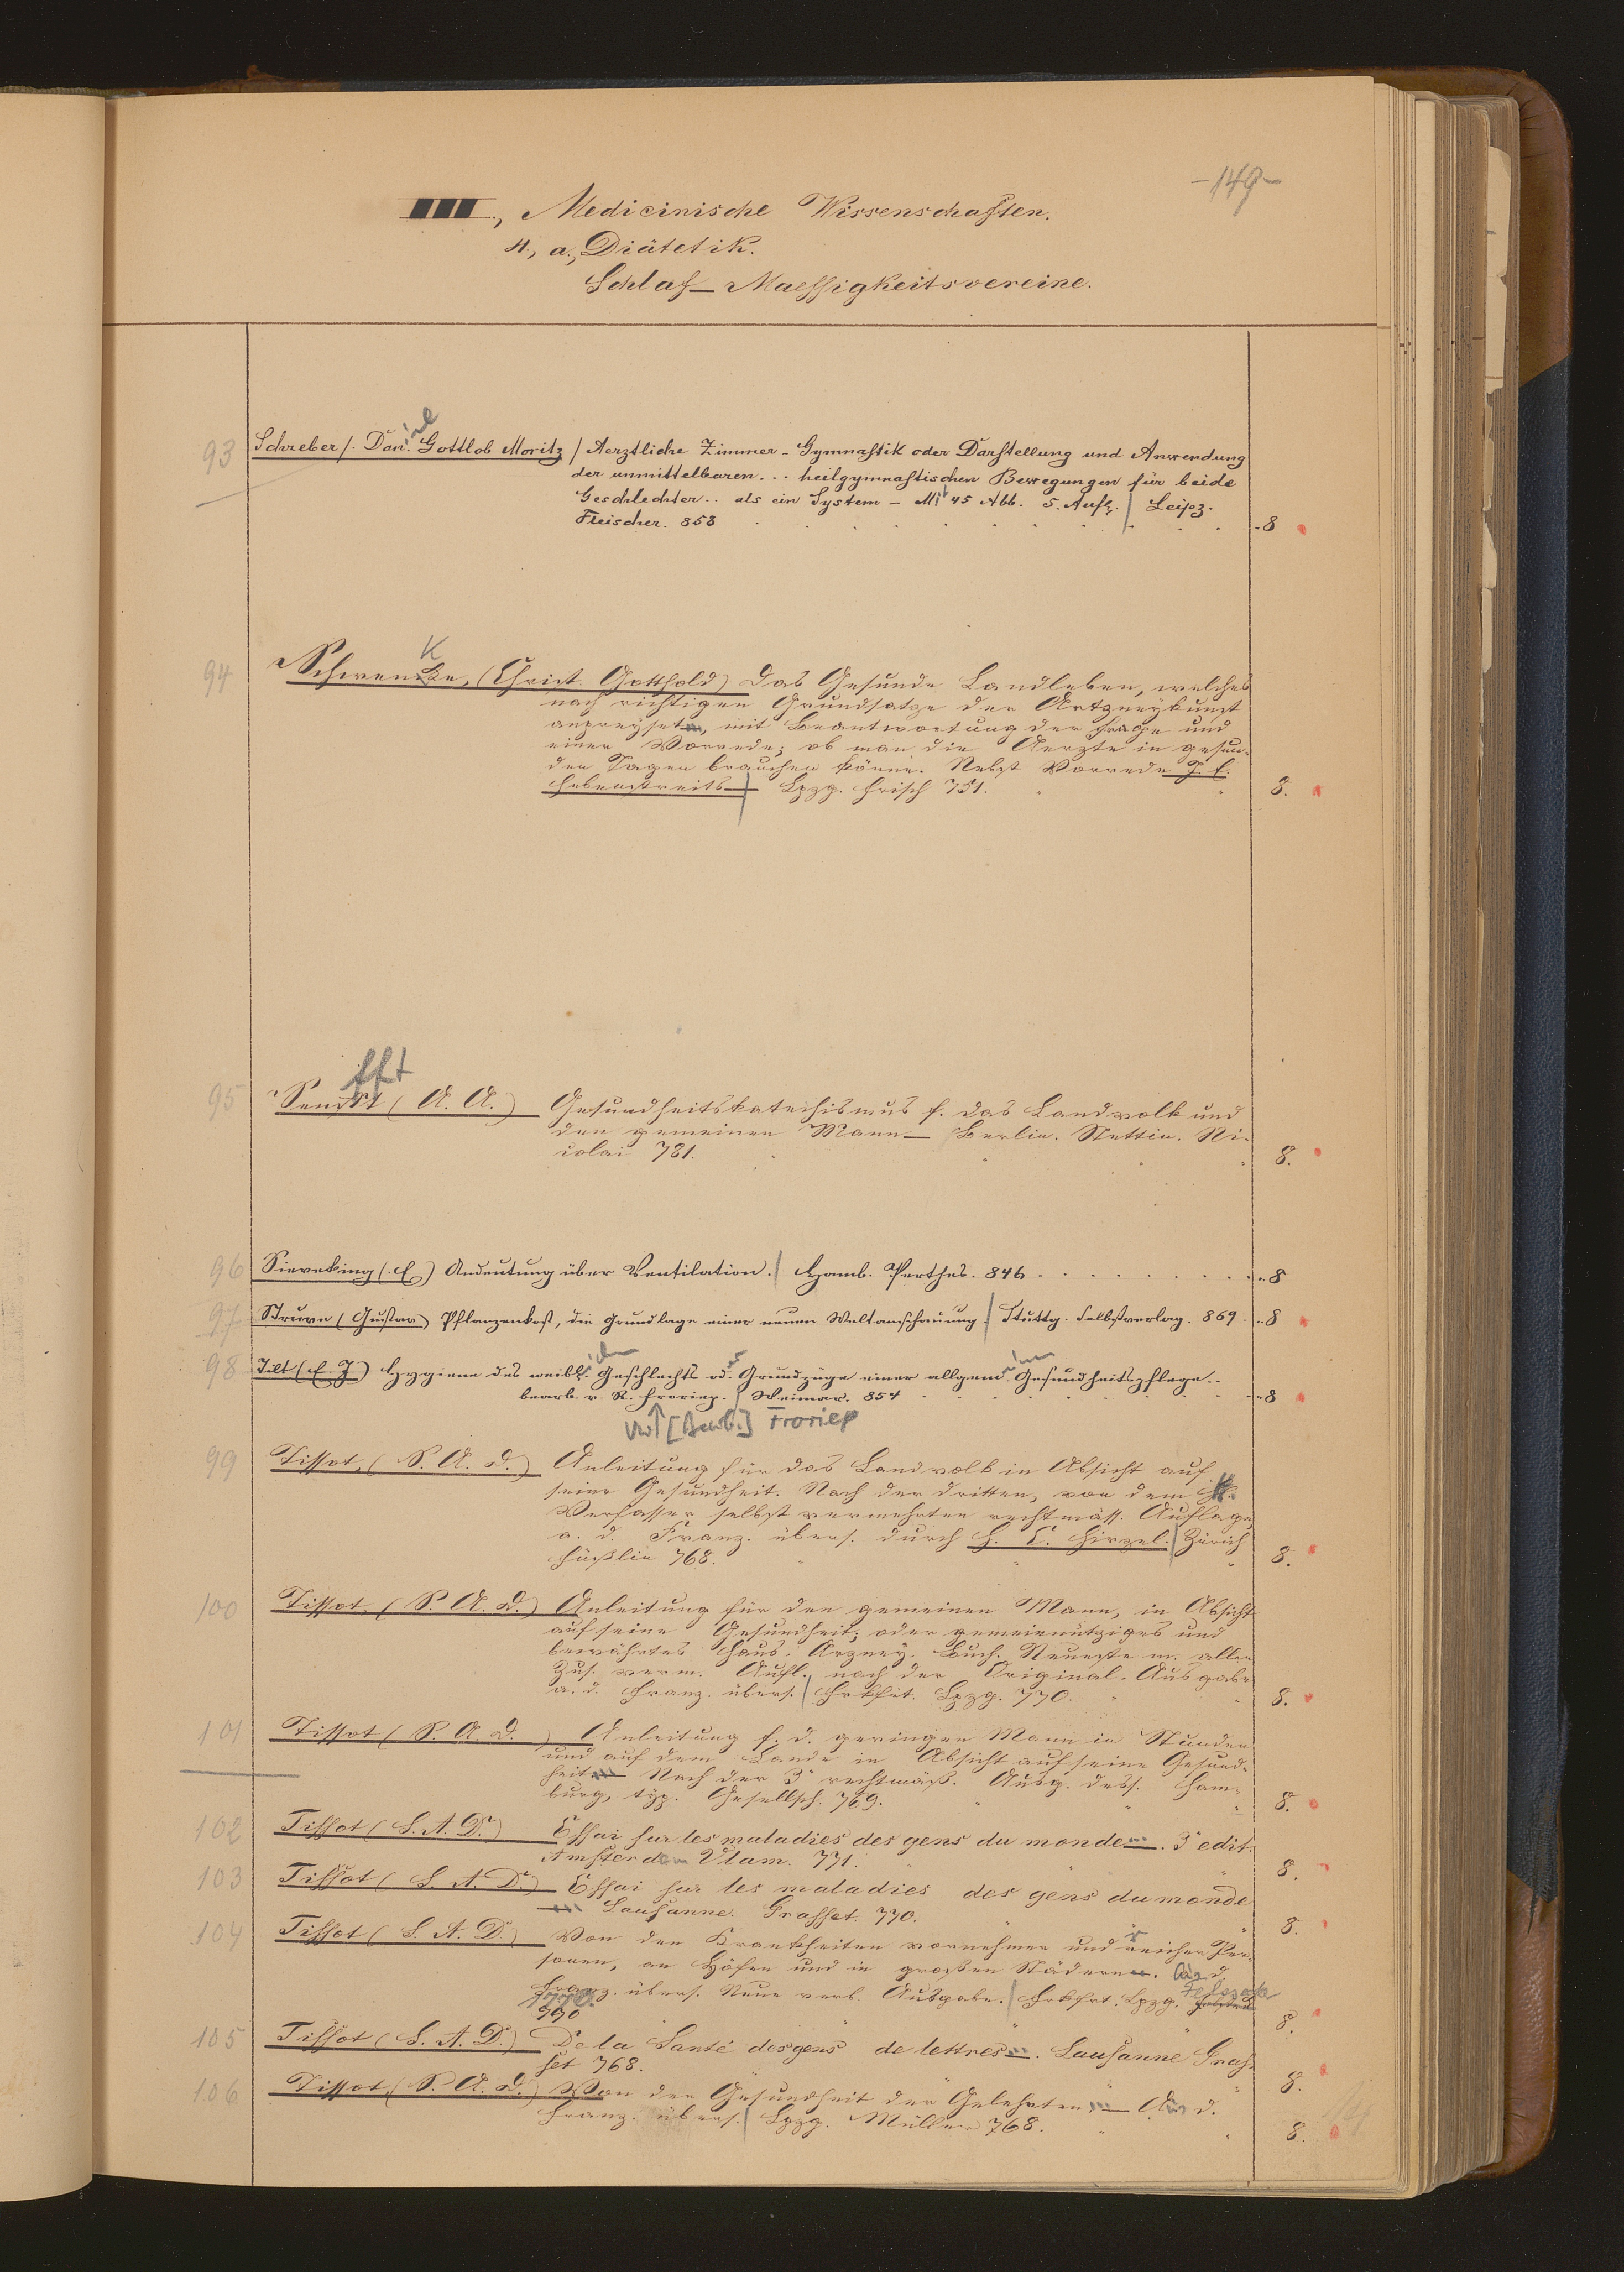 -149-
III., Medicinische Wissenschaften.
4., a., Diätetik.
Schlaf_ Maessigkeitsvereine.
93 Schreber/. Dan. iel Gottlob Moritz / Aerztliche Zimmer-Gymnastik oder Darstellung und Anwendung
der unmittelbaren... heilgymnastischen Bewegungen für beide
Geschlechter.. als ein System - Mit 45 Abb. 5. Aufl. Leipz.
Fleischer. 858 8
94 Schwencke, K (Christ. Gotthold) Das Gesunde Landleben, welches
nach richtigen Grundsatze der Artzneykunst
anpreyset, mit Beantwortung der Frage und
einer Vorrede; ob man die Aerzte in gesun-
den Tagen brauchen könne. Nebst Vorrede J. E.
Hebenstreits Lpzg. Frisch 751. 8.
95 Senfft (A. A.) Gesundheitskatechismus f. das Landvolk und
den gemeinen Mann_ Berlin. Stettin. Ni-
colai 781. 8.
96 Sieveking (. E.) Andeutung über Ventilation. Hamb. Perthes. 846 8
97 Struve (Gustav) Pflanzenkost, die Grundlage einer neuen Weltanschauung. Stuttg. Selbstverlag. 869. 8
98 Tilt (E. J.) Hygiene des weibl. ichen Geschlechts od. er Grundzüge einer allgem. einen Gesundheitspflege..
bearb. v. R. Froriep. Weimar. 854 8
Vw ↑ [Bearb.] Froriep
99 Tissot, (S. A. D.) Anleitung für das Landvolk in Absicht auf
seine Gesundheit. Nach der dritten, von dem H.
Verfasser selbst vermehrten rechtmäss. Auflage
a. d. Franz. übers. durch H. C. Hirzel. Zürich
Füßlin 768. 8.
100 Tissot, (S. A. D.) Anleitung für den gemeinen Mann, in Absicht
auf seine Gesundheit; oder gemeinnütziges und
bewährtes Haus. Arzney. Buch. Neueste m. allen
Zus. verm. Aufl. nach der Original. Ausgabe
a. d. Franz. übers. Frkfrt. Lpzg. 770. 8.
101 Tissot (S. A. D.) Anleitung f. d. geringen Mann in Stunden
und auf dem Lande in Absicht auf seine Gesund-
heit ... Nach der 3n rechtmäß. Ausg. dess. Ham-
burg, typ. Gesellsch. 769. 8.
102 Tissot (S. A. D.) Essai sur les maladies des gens du monde.... 3e edit.
Amsterdam Vlam. 771. 8.
103 Tissot (S. A. D.) Essai sur les maladies des gens du monde
... Lausanne. Grasset. 770. 8.
104 Tissot (S. A. D.) Von den Krankheiten vornehmer und reicher Per-
sonen, an Höfen und in großen Städern. Aus d.
Franz. übers. Neue verb. Ausgabe. Frkfrt. Lpzg.
1770. 770 8.
105 Tissot (S. A. D.) De la Santé des gens de lettres.... Lausanne Gras-
set 768. 8.
106 Tissot, (S. A. D.) Von der Gesundheit der Gelehrten ... Aus d.
Franz. übers. Lpzg. Müller 768. 8.